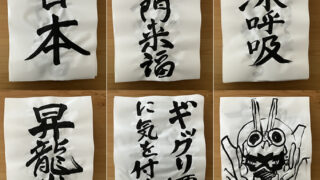 日本
門来福
深呼吸
昇龍
ギックリ
に気を付